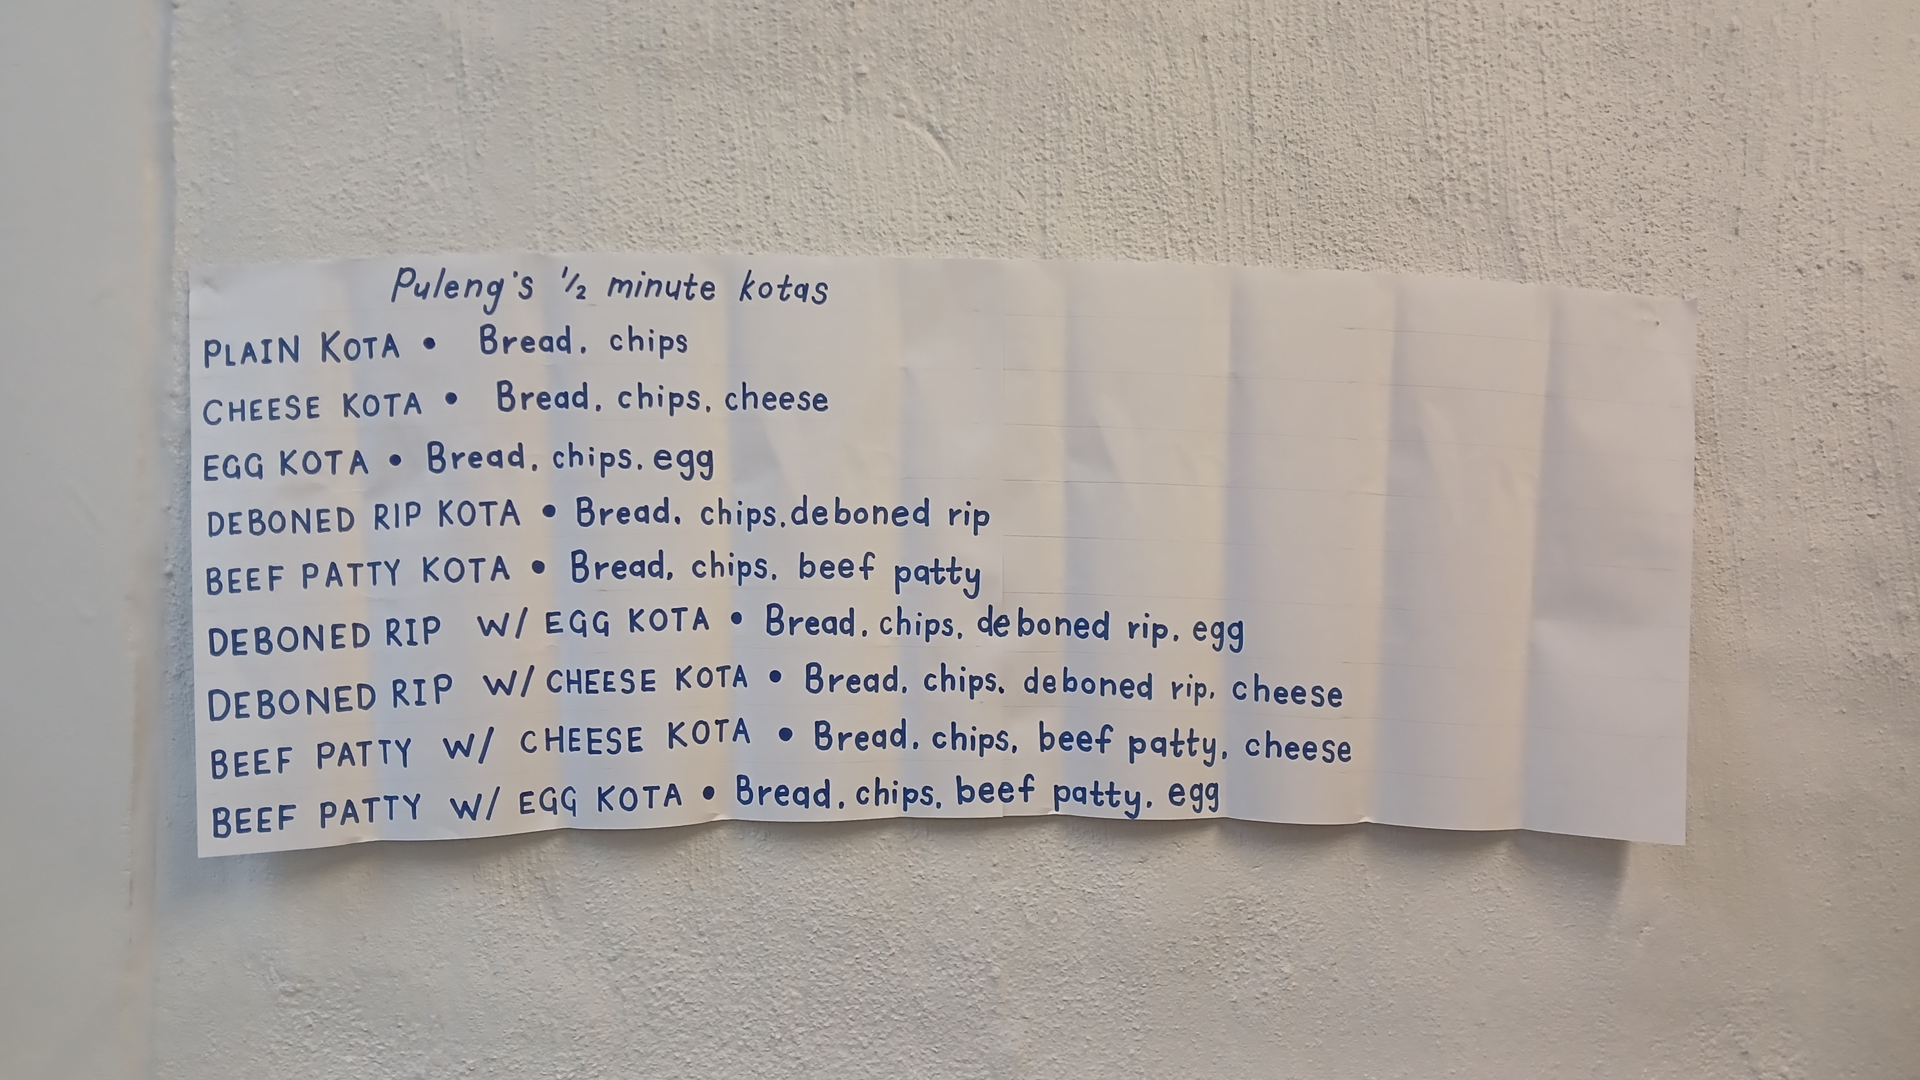 Puleng's 1/2 minute kotas
PLAIN KOTA • Bread, chips
CHEESE KOTA • Bread, chips, cheese
EGG KOTA • Bread, chips, egg
DEBONED RIP KOTA • Bread, chips, deboned rip
BEEF PATTY KOTA • Bread, chips, beef patty
DEBONED RIP W/ EGG KOTA • Bread, chips, deboned rip, egg
DEBONED RIP W/ CHEESE KOTA • Bread, chips, deboned rip, cheese
BEEF PATTY W/ CHEESE KOTA • Bread, chips, beef patty, cheese
BEEF PATTY W/ EGG KOTA • Bread, chips, beef patty, egg